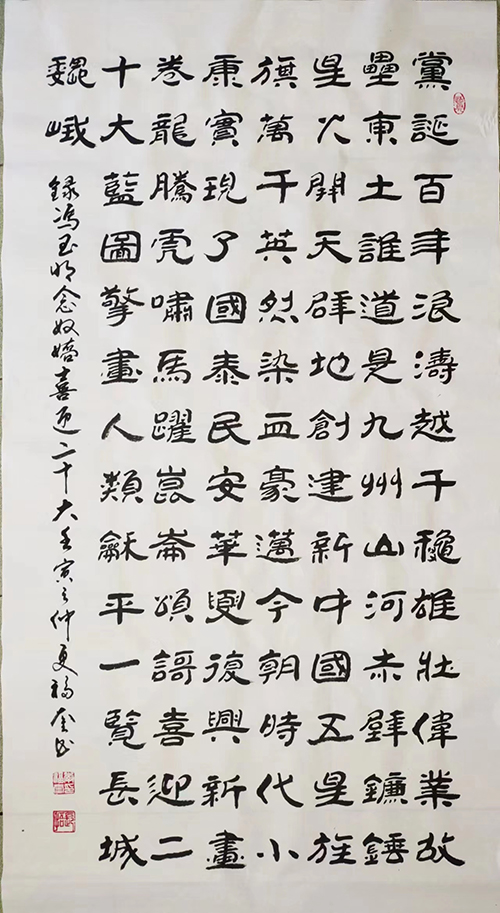 黨誕百年浪濤越千穐雄壯偉業故
壘東土誰道是九州山河赤壁鐮錘
星火開天辟地創建新中國五星旌
旗萬千英烈染血豪邁今朝時代小
康實現了國泰民安華夏復興新畫
卷龍騰虎嘯馬躍崑崙頌謌喜迎二
十大藍圖擎畫人類龢平一覽長城
巍峨
録冯玉明念奴嬌喜迎二十大壬寅之仲夏福奎书